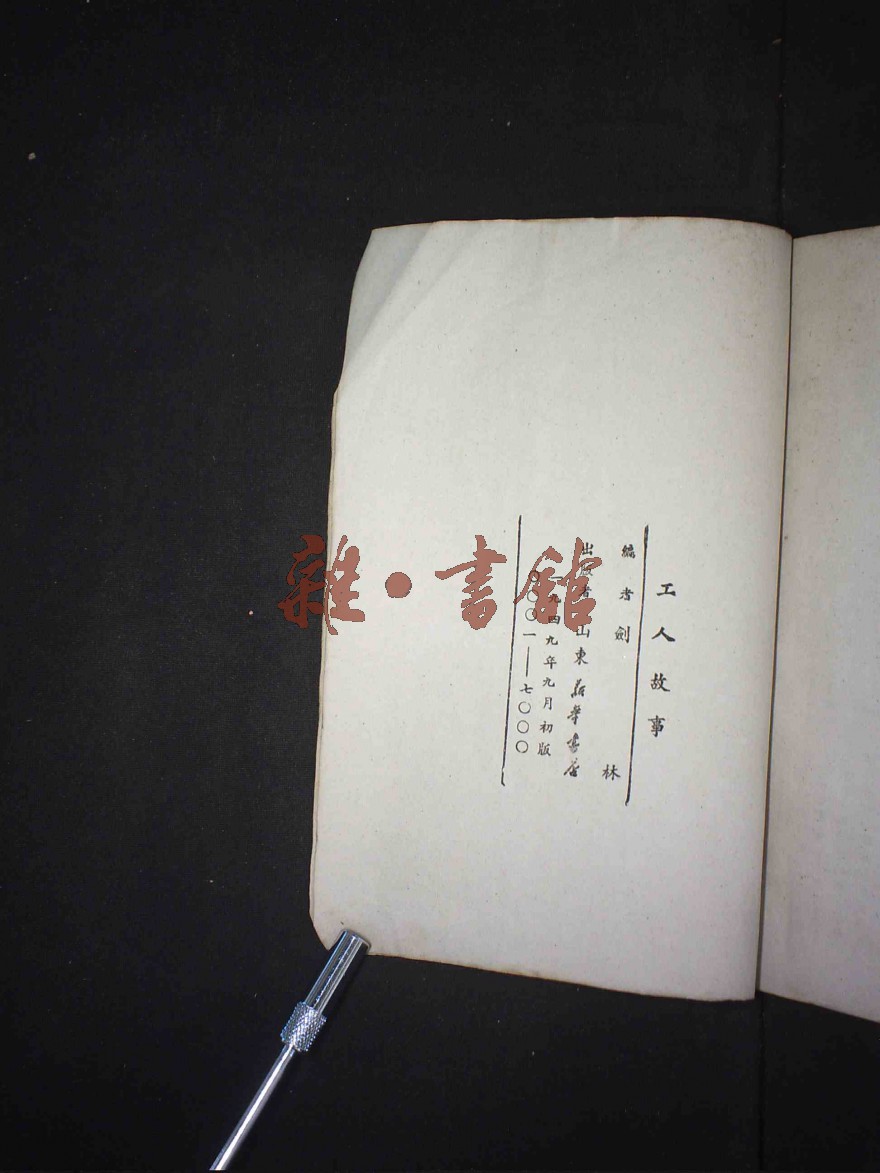 工人故事
編者 劍林
出版者 山東新華書店
一九四九年九月初版
〇〇〇一——七〇〇〇
雜·書館